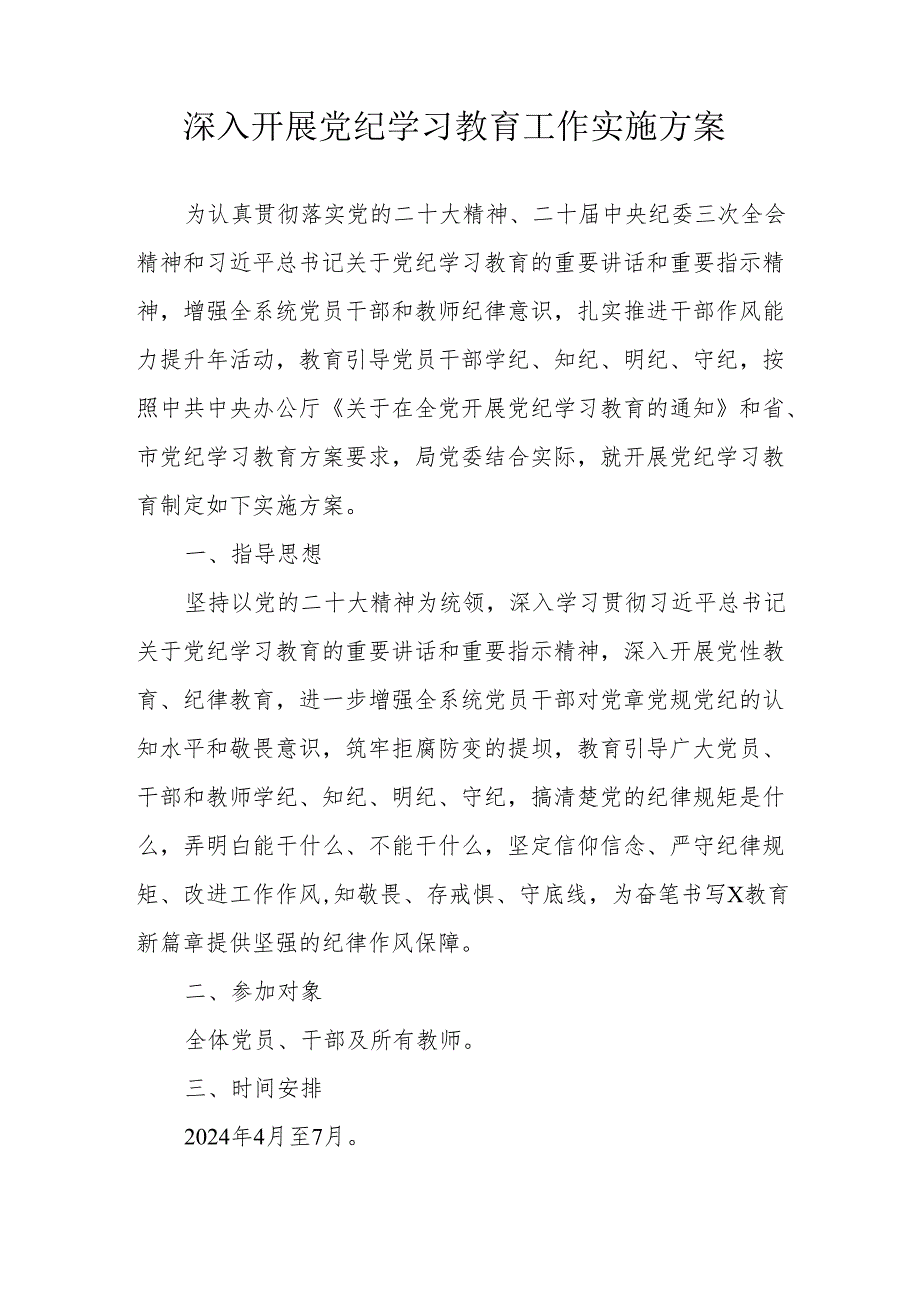 深入开展党纪学习教育工作实施方案
为认真贯彻落实党的二十大精神、二十届中央纪委三次全会
精神和习近平总书记关于党纪学习教育的重要讲话和重要指示精
神，增强全系统党员干部和教师纪律意识，扎实推进干部作风能
力提升年活动，教育引导党员干部学纪、知纪、明纪、守纪，按
照中共中央办公厅《关于在全党开展党纪学习教育的通知》和省、
市党纪学习教育方案要求，局党委结合实际，就开展党纪学习教
育制定如下实施方案。
一、指导思想
坚持以党的二十大精神为统领，深入学习贯彻习近平总书记
关于党纪学习教育的重要讲话和重要指示精神，深入开展党性教
育、纪律教育，进一步增强全系统党员干部对党章党规党纪的认
知水平和敬畏意识，筑牢拒腐防变的提坝，教育引导广大党员、
干部和教师学纪、知纪、明纪、守纪，搞清楚党的纪律规矩是什
么，弄明白能干什么、不能干什么，坚定信仰信念、严守纪律规
矩、改进工作作风,知敬畏、存戒惧、守底线，为奋笔书写X教育
新篇章提供坚强的纪律作风保障。
二、参加对象
全体党员、干部及所有教师。
三、时间安排
2024年4月至7月。